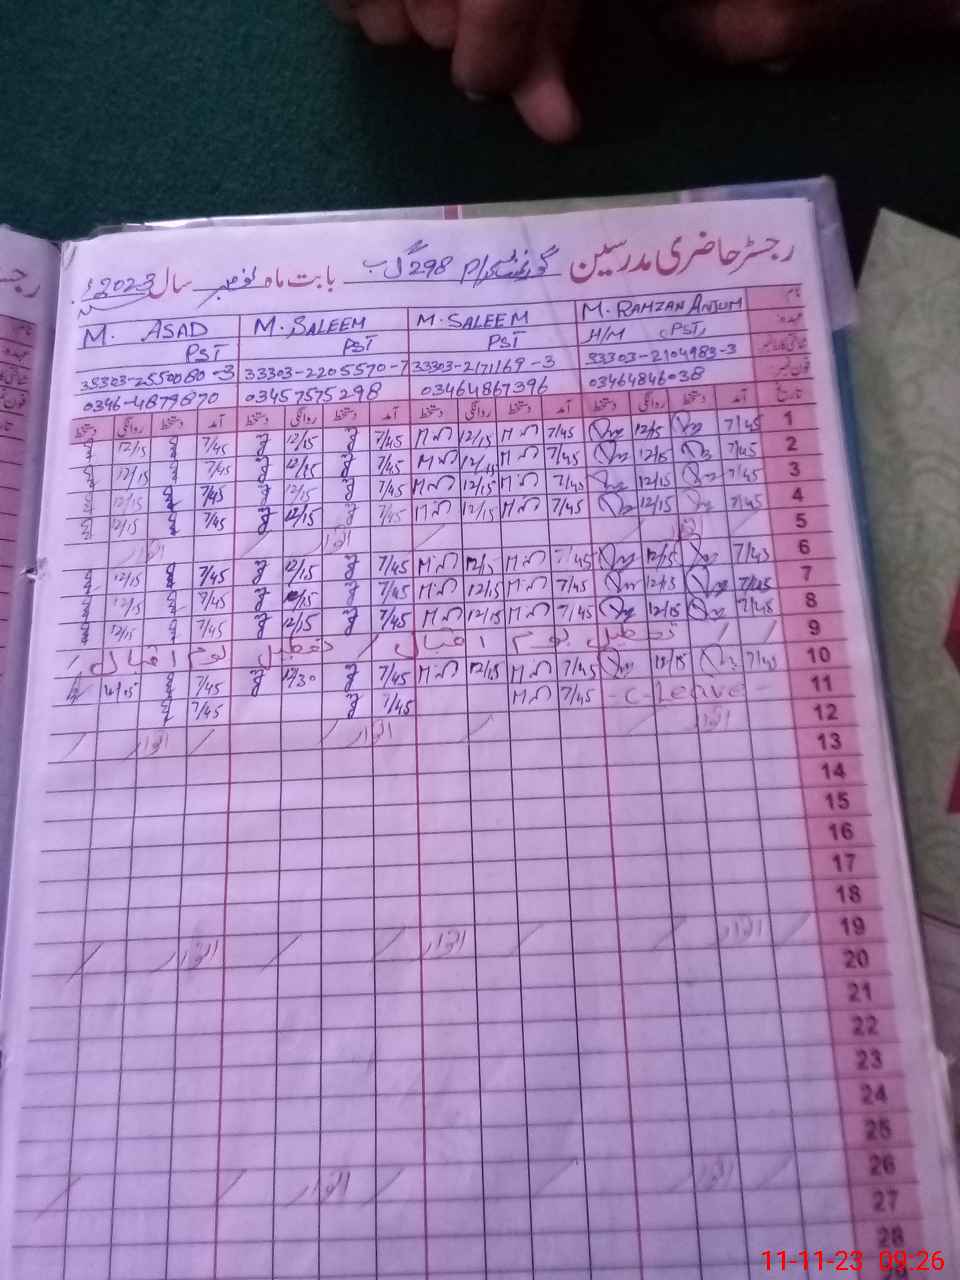 رجسٹر حاضری مدرسین گورنمنٹ P/S 298 گ ب بابت ماہ نومبر سال 2023ء
نام M. RAMZAN ANJUM M. SALEEM M. SALEEM M. ASAD
عہدہ H/M (PST) PST PST PST
33303-2104983-3 33303-2171169-3 33303-2205570-7 35303-2550080-3
فون نمبر 03464846038 03464867396 03457575298 0346-4879870
تاریخ آمد دستخط روانگی دستخط آمد دستخط روانگی دستخط آمد دستخط روانگی دستخط آمد دستخط روانگی دستخط
1 7/45 12/15 7/45 12/15 7/45 12/15 7/45 12/15
2 7/45 12/15 7/45 12/15 7/45 12/15 7/45 12/15
3 7/45 12/15 7/45 12/15 7/45 12/15 7/45 12/15
4 7/45 12/15 7/45 12/15 7/45 12/15 7/45 12/15
5 اتوار اتوار اتوار
6 7/45 12/15 7/45 7/45 12/15 7/45 12/15
7 7/45 12/15 7/45 12/15 7/45 7/45 12/15
8 7/45 12/15 7/45 12/15 7/45 12/15 7/45 12/15
9 تعطیل یوم اقبال تعطیل یوم اقبال
10 7/45 12/15 7/45 12/15 7/45 12/30 7/45
11 - C-Leave - 7/45 7/45 7/45
12 اتوار اتوار اتوار
13
14
15
16
17
18
19 اتوار اتوار اتوار
20
21
22
23
24
25
26 اتوار اتوار
27
28
11-11-23 09:26